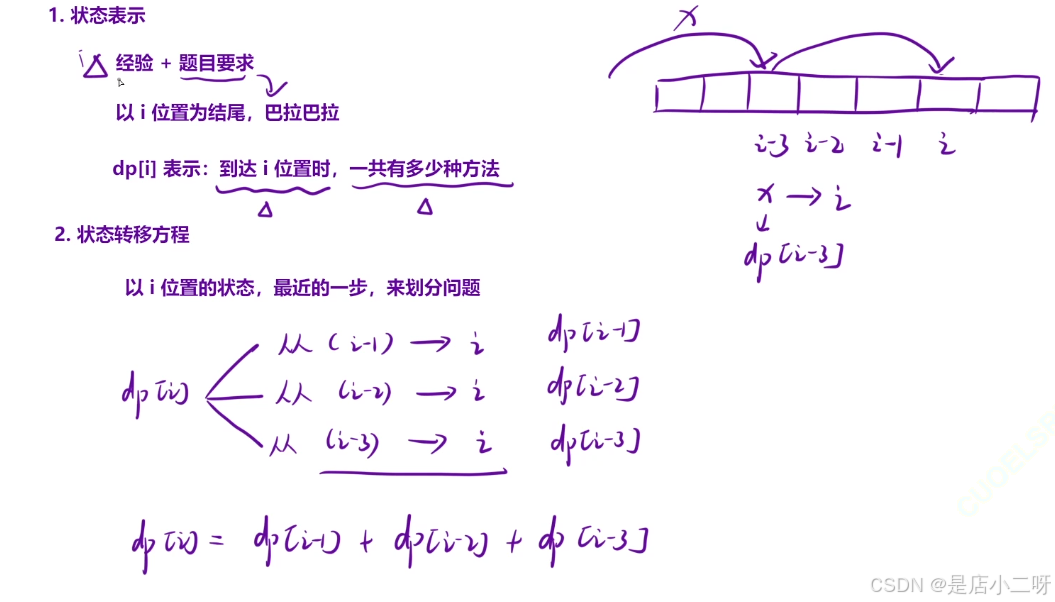 1. 状态表示
经验 + 题目要求
以 i 位置为结尾，巴拉巴拉
dp[i] 表示：到达 i 位置时，一共有多少种方法
x
i-3 i-2 i-1 i
x → i
↓
dp[i-3]
2. 状态转移方程
以 i 位置的状态，最近的一步，来划分问题
dp[i]
从 (i-1) → i dp[i-1]
从 (i-2) → i dp[i-2]
从 (i-3) → i dp[i-3]
dp[i] = dp[i-1] + dp[i-2] + dp[i-3]
CUOELSP
CSDN @是店小二呀